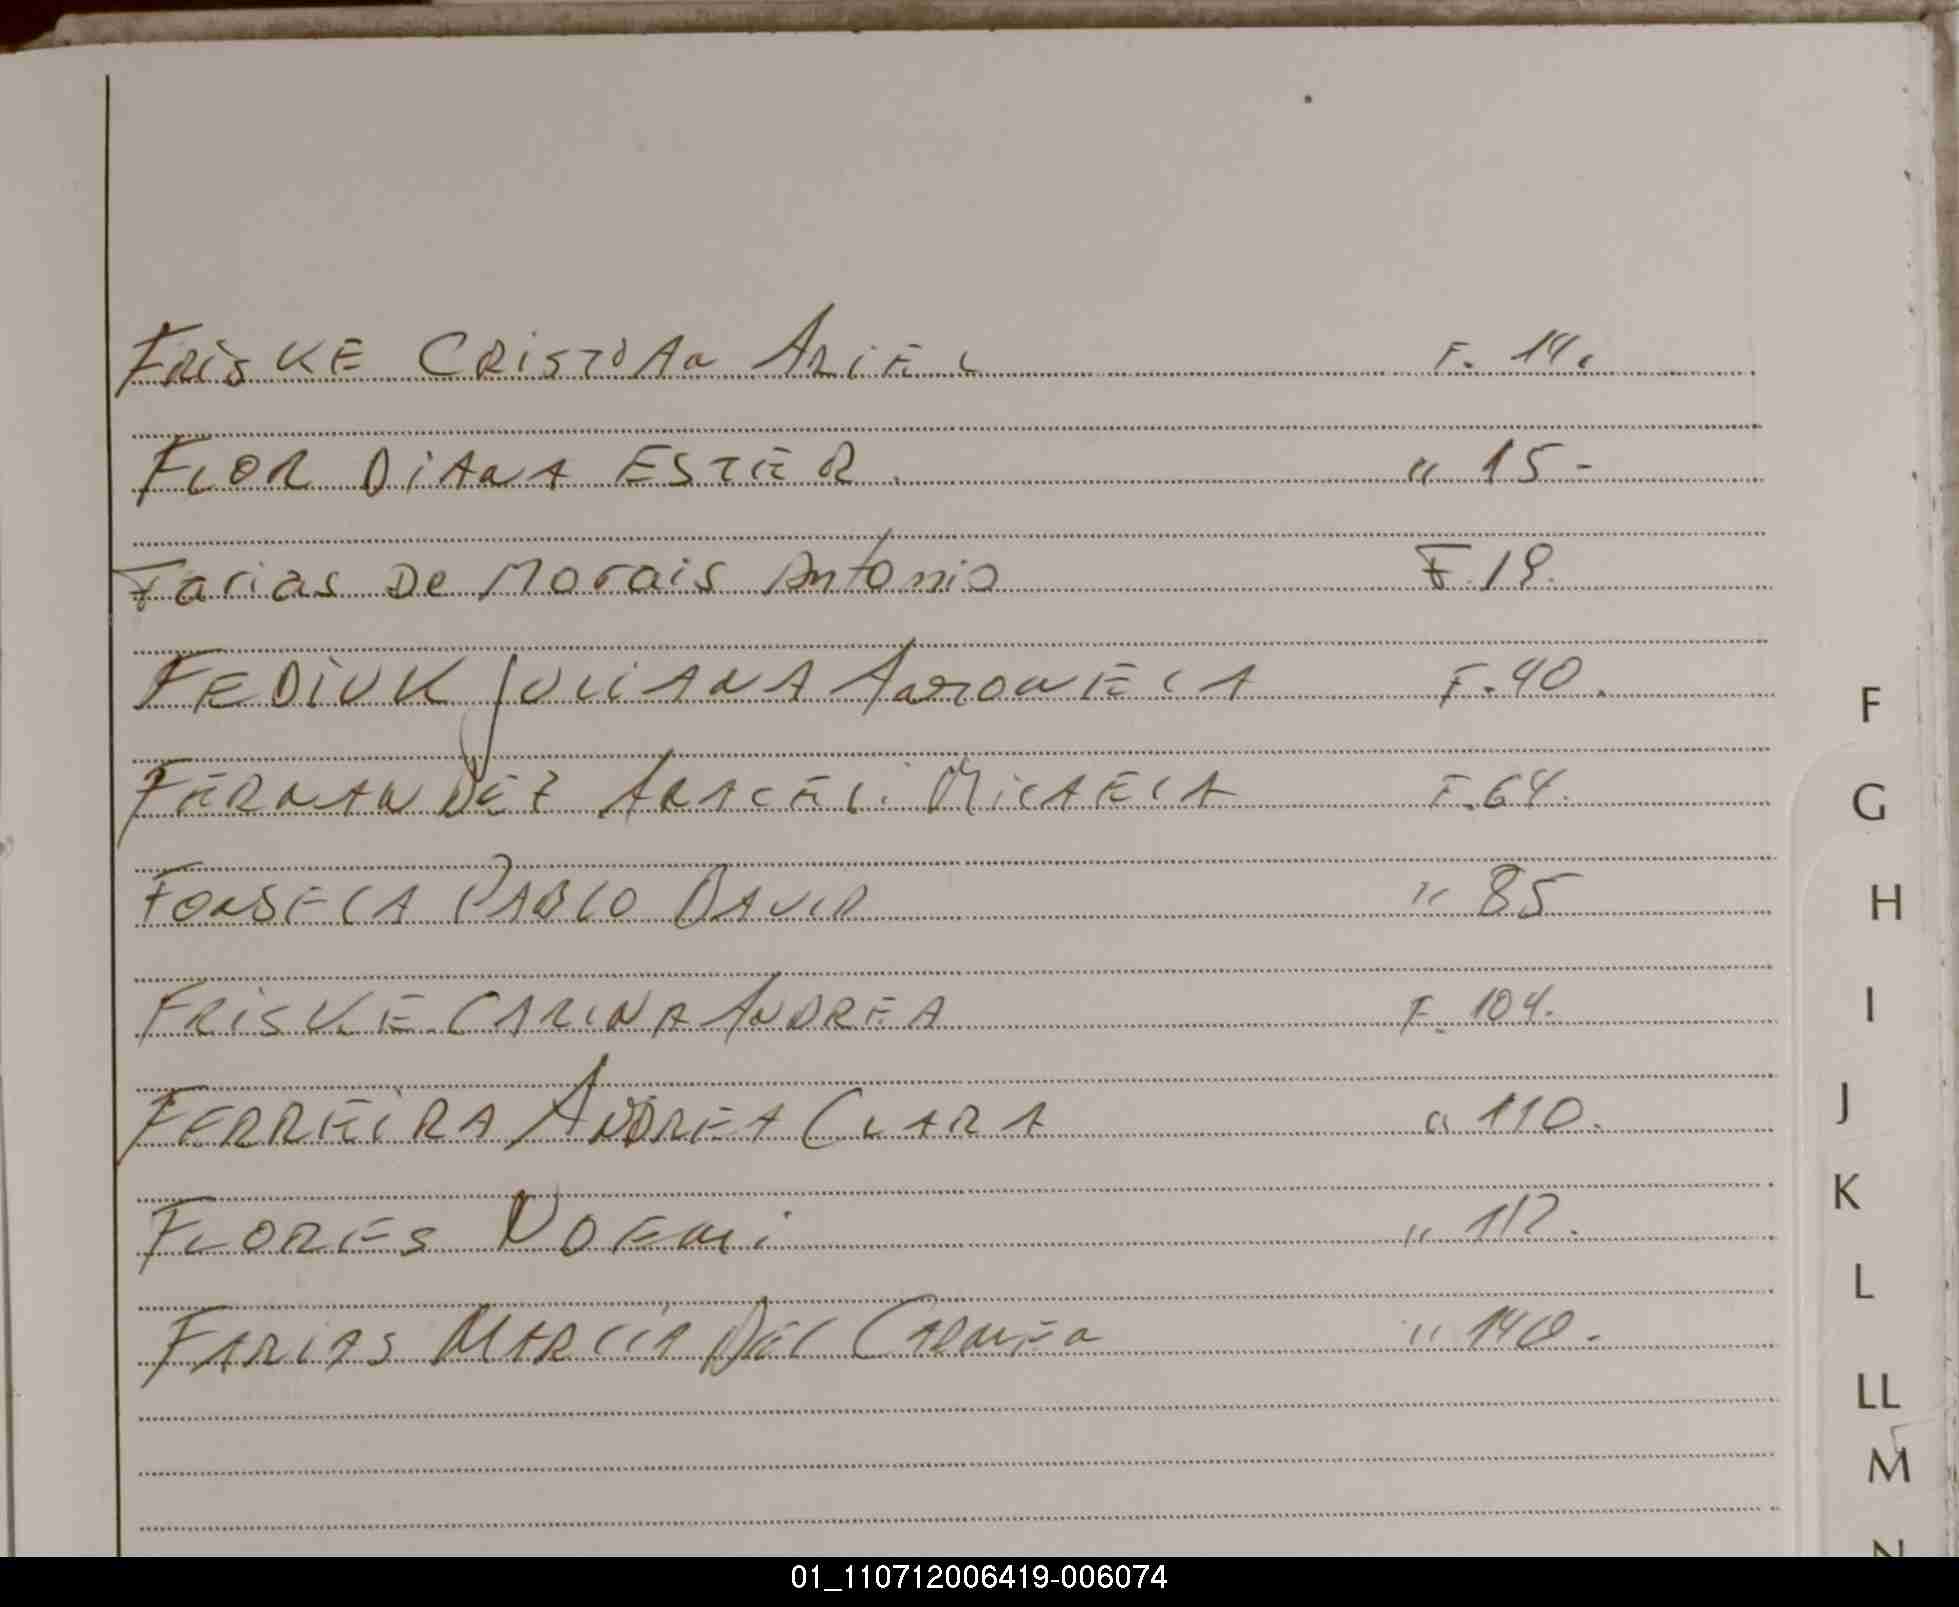 FRiSKE CRISTIAN ARIEL F. 14.
FLOR DIANA ESTER. " 15-
Farias De Morais Antonio F. 19.
FEDIUK JULIANA ANTONIELA F. 40.
FERNANDEZ ARACELI MICAELA F. 64.
FONSECA PABLO DAVID " 85
FRISKE CARINA ANDREA F. 104.
FERREIRA ANDREA CLARA " 110.
FLORES NOEMI " 112.
FARIAS MARCIA DEL CARMEN " 140.
F
G
H
I
J
K
L
LL
M
N
01_110712006419-006074